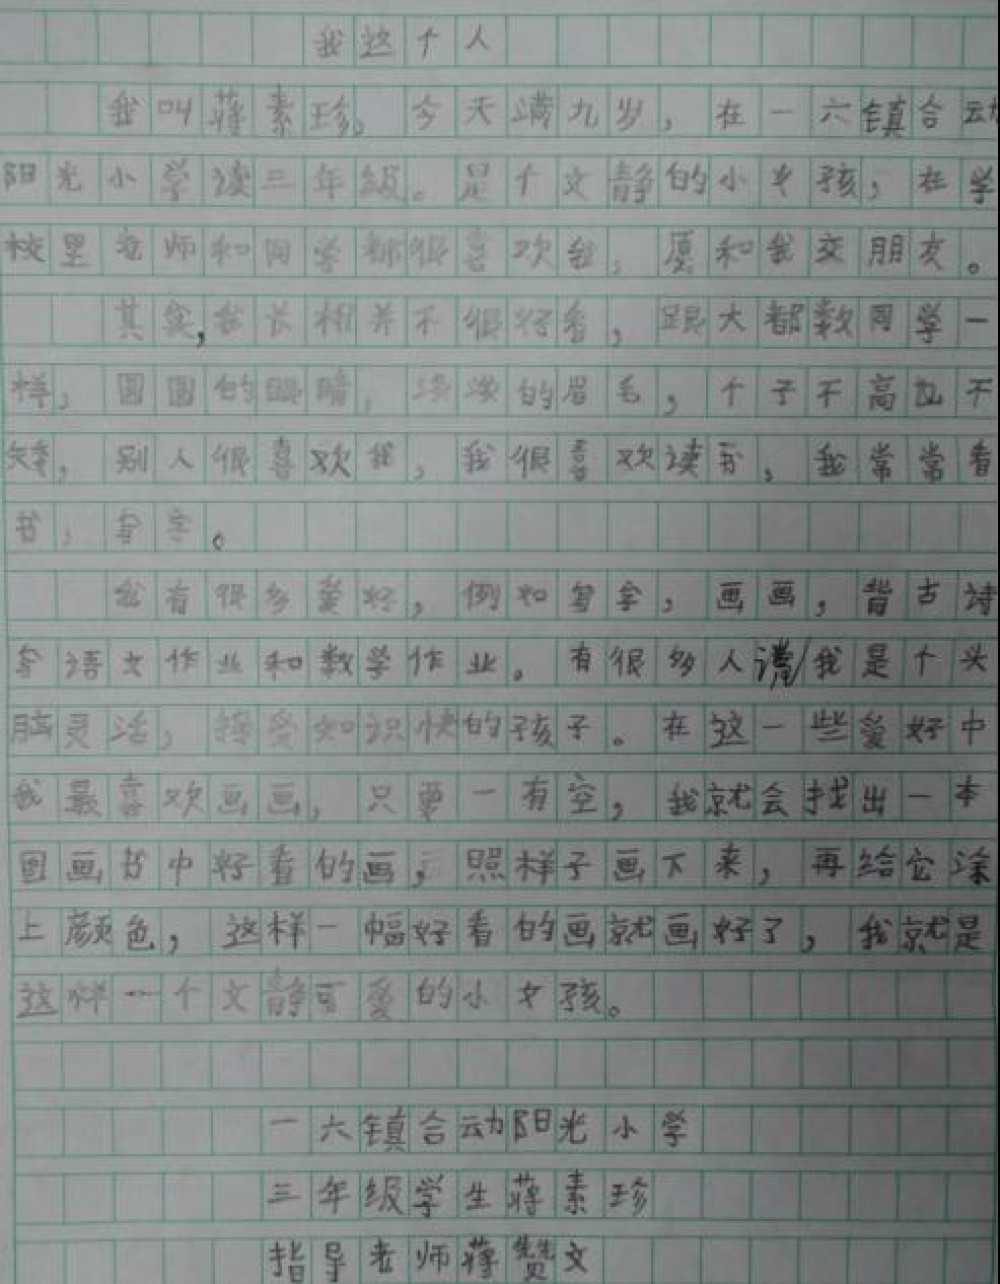 我这个人
我叫蒋素珍,今天满九岁,在一六镇合动
阳光小学读三年级。是个文静的小女孩,在学
校里老师和同学都很喜欢我,愿和我交朋友。
其实,我长相并不很好看,跟大都数同学一
样,圆圆的眼睛,淡淡的眉毛,个子不高也不
矮,别人很喜欢我,我很喜欢读书,我常常看
书,写字。
我有很多爱好,例如写字,画画,背古诗
写语文作业和数学作业。有很多人说我是个头
脑灵活,接受知识快的孩子。在这一些爱好中
我最喜欢画画,只要一有空,我就会找出一本
图画书中好看的画,照样子画下来,再给它涂
上颜色,这样一幅好看的画就画好了,我就是
这样一个文静可爱的小女孩。
一六镇合动阳光小学
三年级学生蒋素珍
指导老师蒋赞文